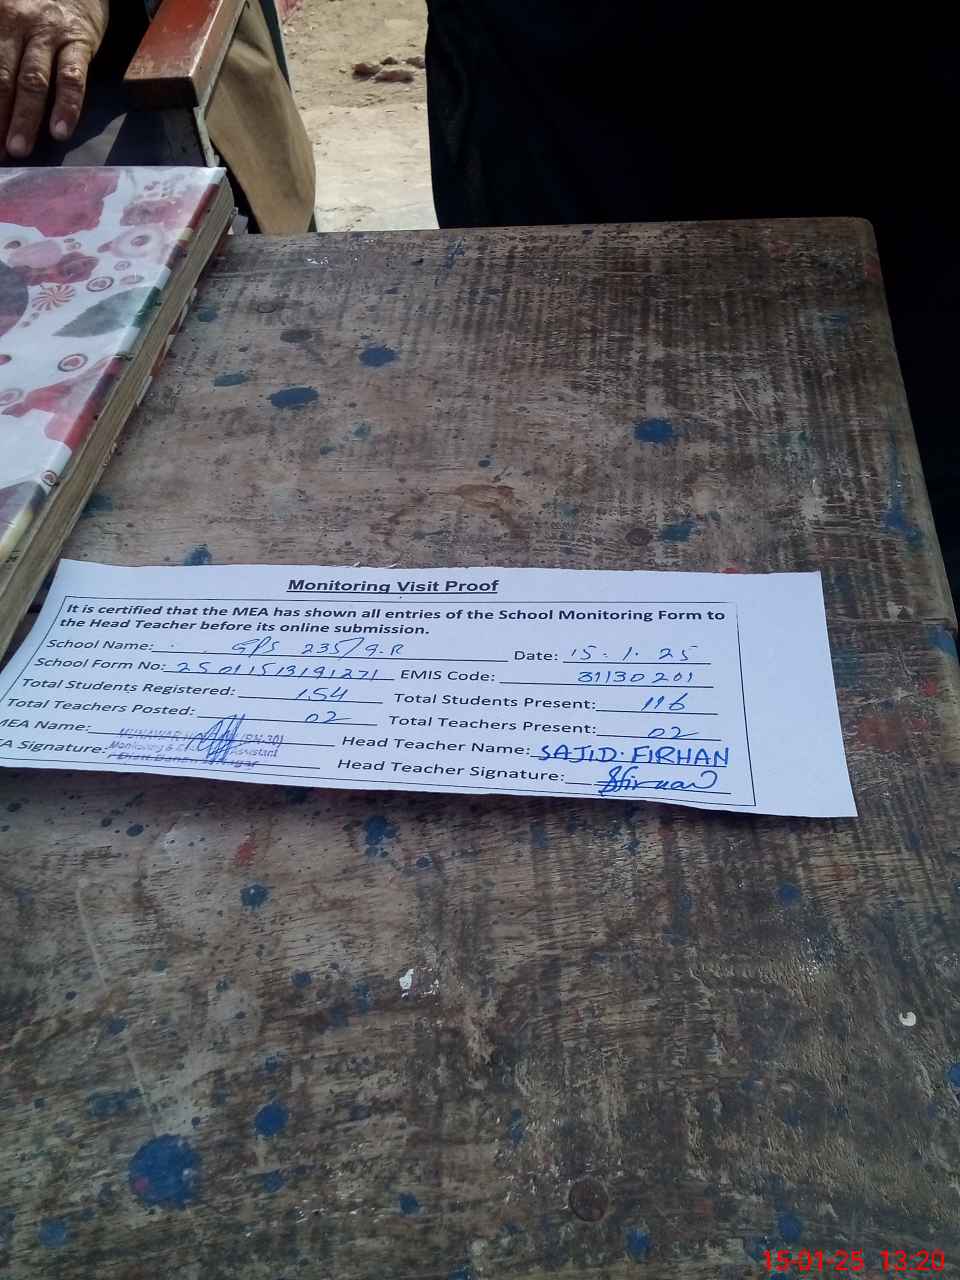 Monitoring Visit Proof
It is certified that the MEA has shown all entries of the School Monitoring Form to
the Head Teacher before its online submission.
School Name: GPS 235/9.R Date: 15.1.25
School Form No: 25011513191271 EMIS Code: 31130201
Total Students Registered: 154 Total Students Present: 116
Total Teachers Posted: 02 Total Teachers Present: 02
MEA Name: MUNAWAR Head Teacher Name: SAJID. FIRHAN
EA Signature: Monitoring & Assistant Head Teacher Signature: Sfirhan
15-01-25 13:20